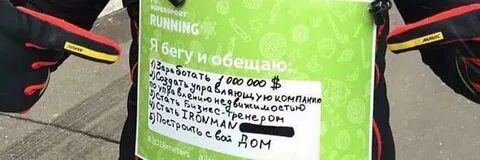 SUPERSPORT
RUNNING
Я бегу и обещаю:
1) Заработать 1 000 000 $
2) Создать управляющую компанию
по управлению недвижимостью
3) Стать Бизнес-тренером
4) Стать IRONMAN
5) Построить свой ДОМ
MAVIC